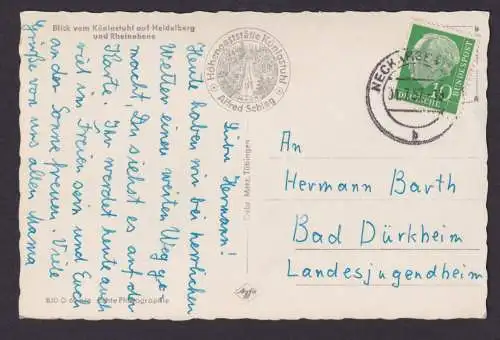 Blick vom Königstuhl auf Heidelberg
und Rheinebene
Lieber Hermann!
Heute haben wir bei herrlichem
Wetter einen weiten Weg ge-
macht, Du siehst es auf der
Karte. Ihr werdet heute auch
viel im Freien sein und Euch
an der Sonne freuen. Viele
Grüße von uns allen Mama
Höhengaststätte Königstuhl
Alfred Schlag
Gebr. Metz, Tübingen
Echte Photographie
NECKARGE
b
10
DEUTSCHE
BUNDESPOST
An
Hermann Barth
Bad Dürkheim
Landesjugendheim